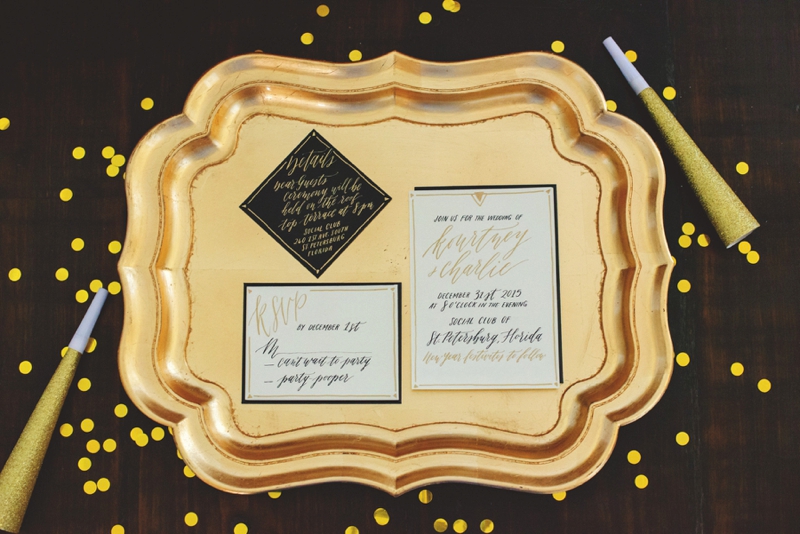 Details
Dear Guests
ceremony will be
held in the roof
top terrace at 8pm
SOCIAL CLUB
260 1ST AVE SOUTH
ST PETERSBURG
FLORIDA
RSVP
BY DECEMBER 1st
M
can't wait to party
party-pooper
JOIN US FOR THE WEDDING OF
Kourtney
& Charlie
DECEMBER 31st 2015
AT 8 O'CLOCK IN THE EVENING
SOCIAL CLUB OF
St Petersburg, Florida
New year festivities to follow